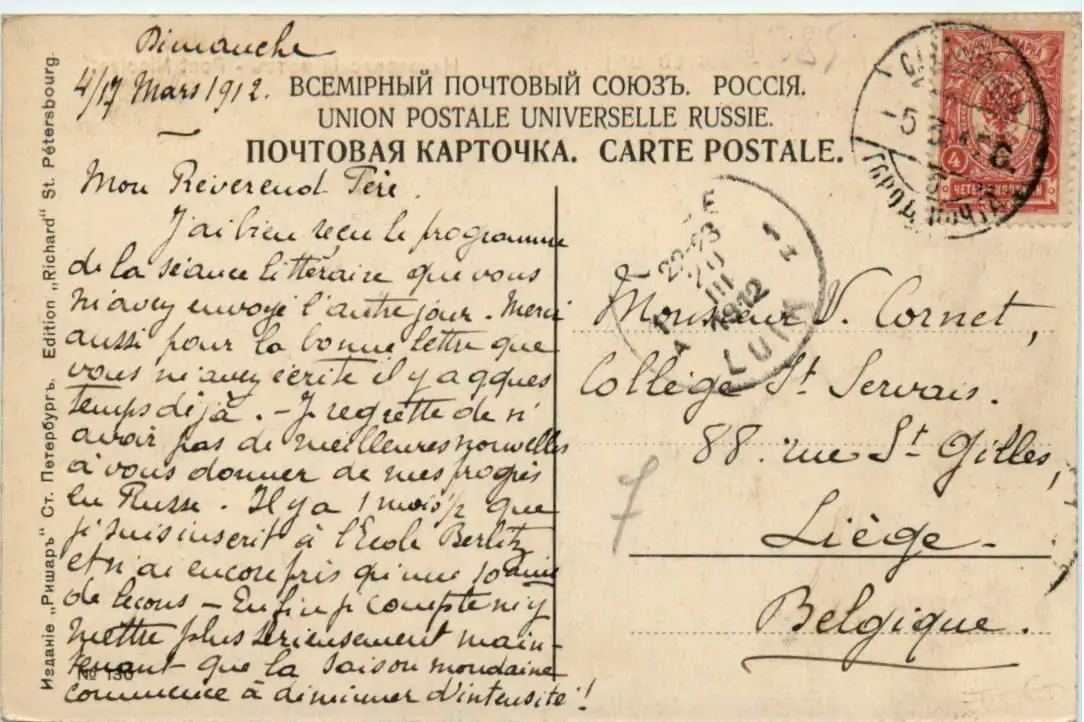 Dimanche
4/17 Mars 1912.
ВСЕМІРНЫЙ ПОЧТОВЫЙ СОЮЗЪ. РОССІЯ.
UNION POSTALE UNIVERSELLE RUSSIE.
ПОЧТОВАЯ КАРТОЧКА. CARTE POSTALE.
Mon Révérend Père.
J'ai bien reçu le programme
de la séance littéraire que vous
m'avez envoyé l'autre jour. Merci
aussi pour la bonne lettre que
vous m'avez écrite il y a qques
temps déjà. - Je regrette de n'
avoir pas de meilleures nouvelles
à vous donner de mes progrès
en Russe. Il y a 1 mois ½ que
je suis inscrit à l'Ecole Berlitz
et n'ai encore pris qu'une 10aine
de leçons - Enfin je compte m'y
mettre plus sérieusement main-
tenant que la saison mondaine
commence à diminuer d'intensité!
№ 136
Изданіе „Ришаръ" Ст. Петербургъ. Edition „Richard" St. Pétersbourg.
4
ЧЕТЫРЕ КОПѢЙКИ
5
ГОРОД. ПОЧТА
22-23
20
III
1912
LUIK
Monsieur V. Cornet,
Collège St Servais.
88. rue St Gilles,
Liège -
Belgique.
7